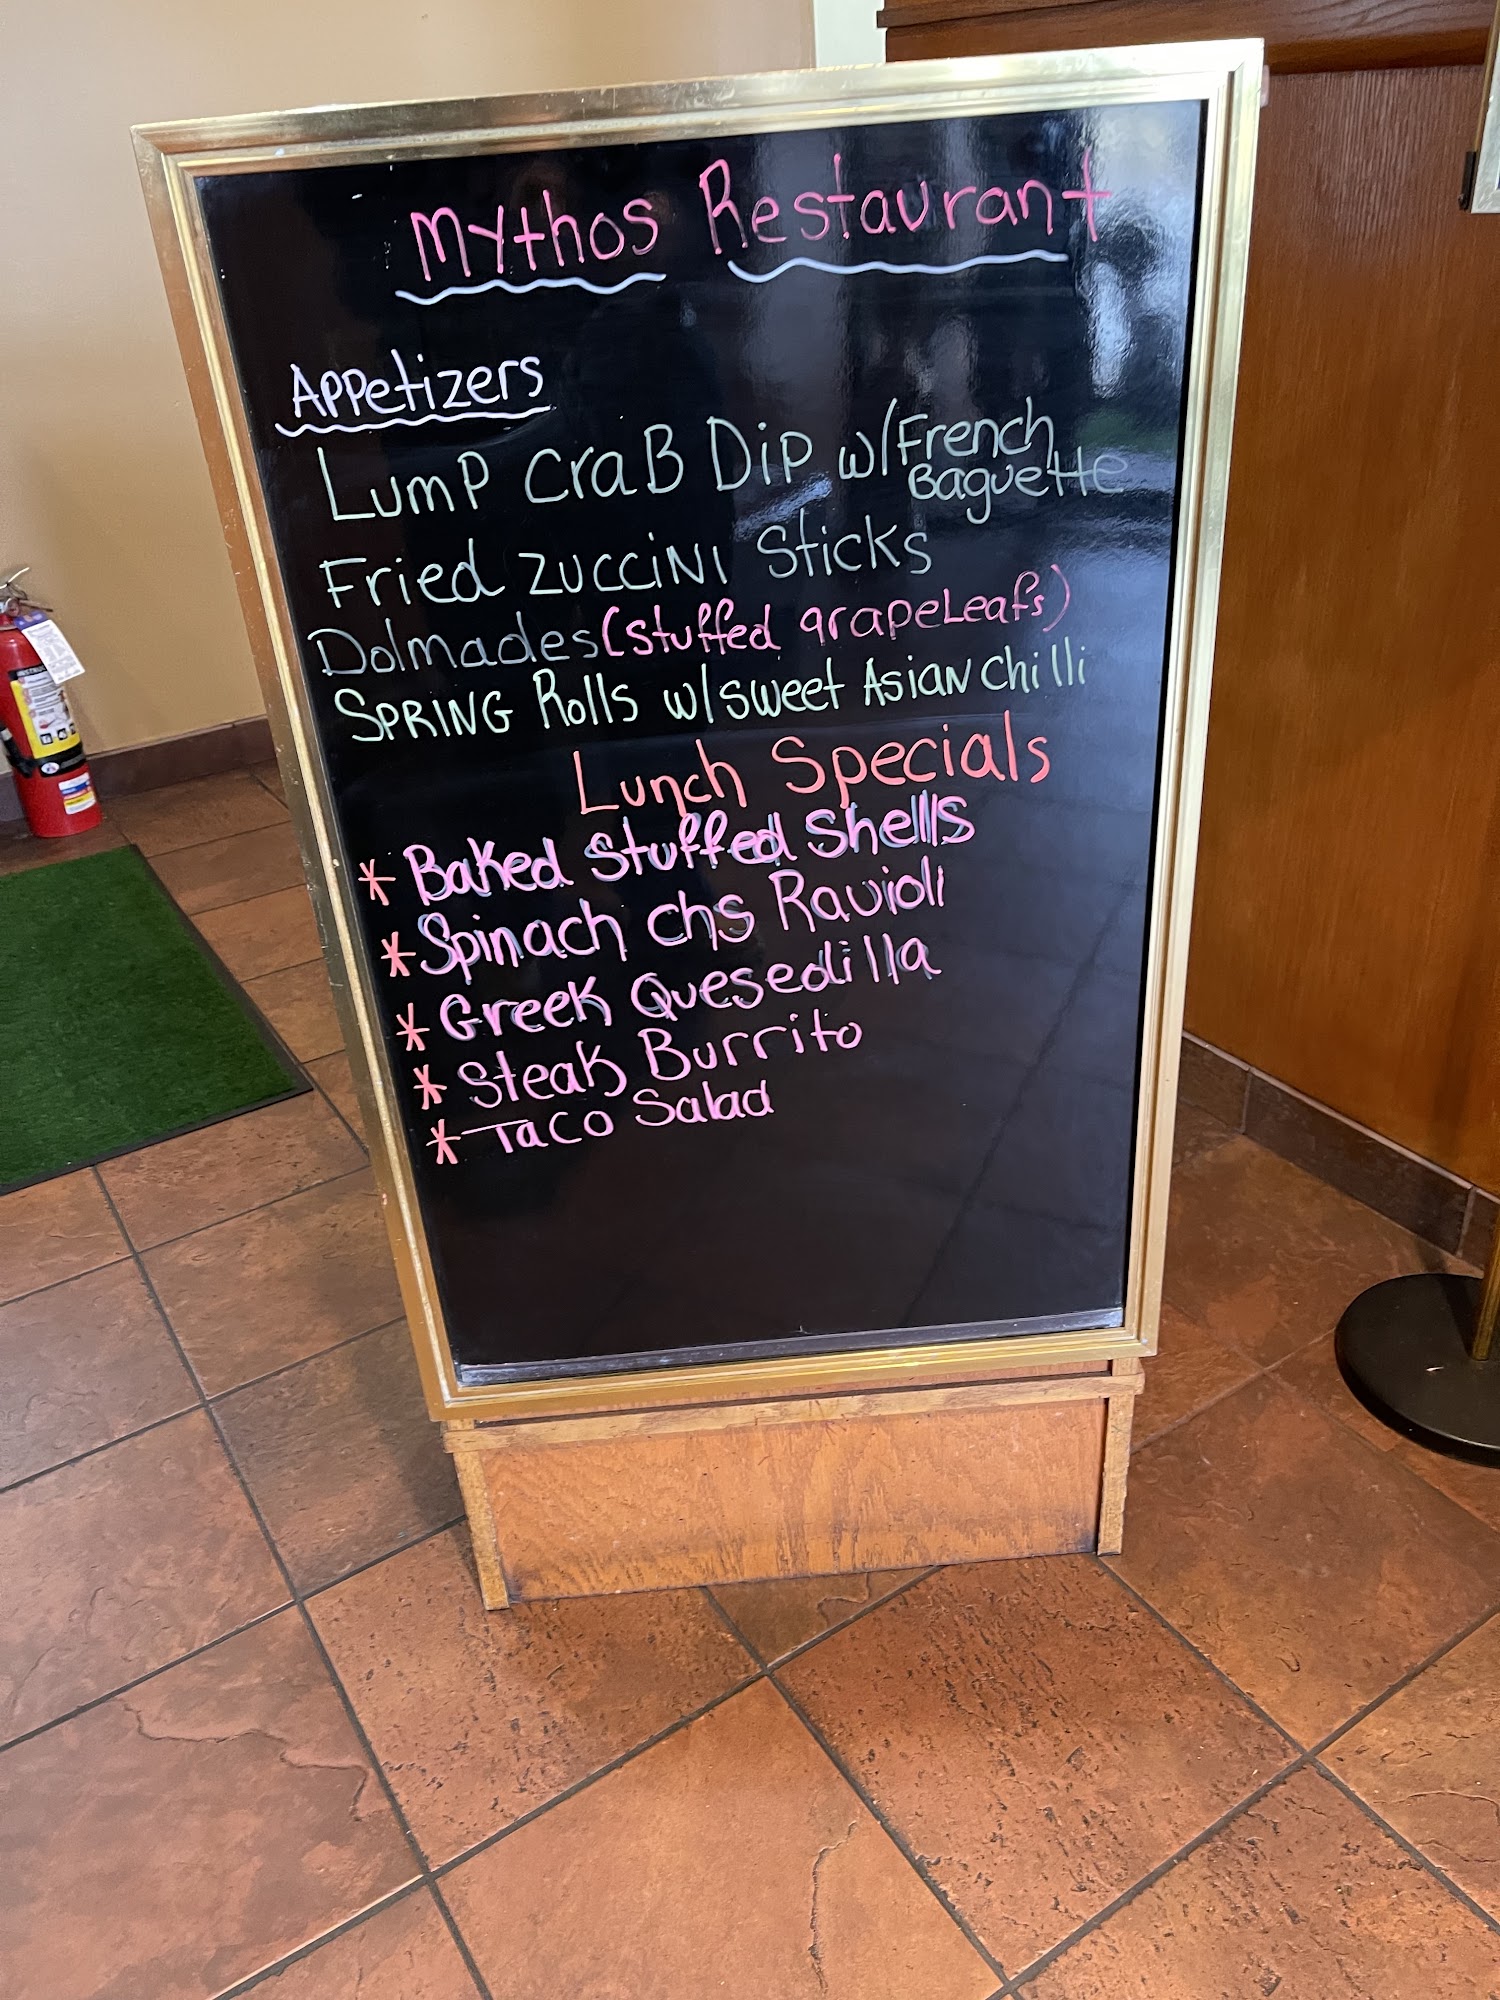 Mythos Restaurant
Appetizers
Lump Crab Dip w/French
Baguette
Fried Zuccini Sticks
Dolmades (stuffed grapeLeafs)
SPRING Rolls w/sweet Asian chilli
Lunch Specials
* Baked Stuffed Shells
* Spinach chs Ravioli
* Greek Quesedilla
* Steak Burrito
* Taco Salad